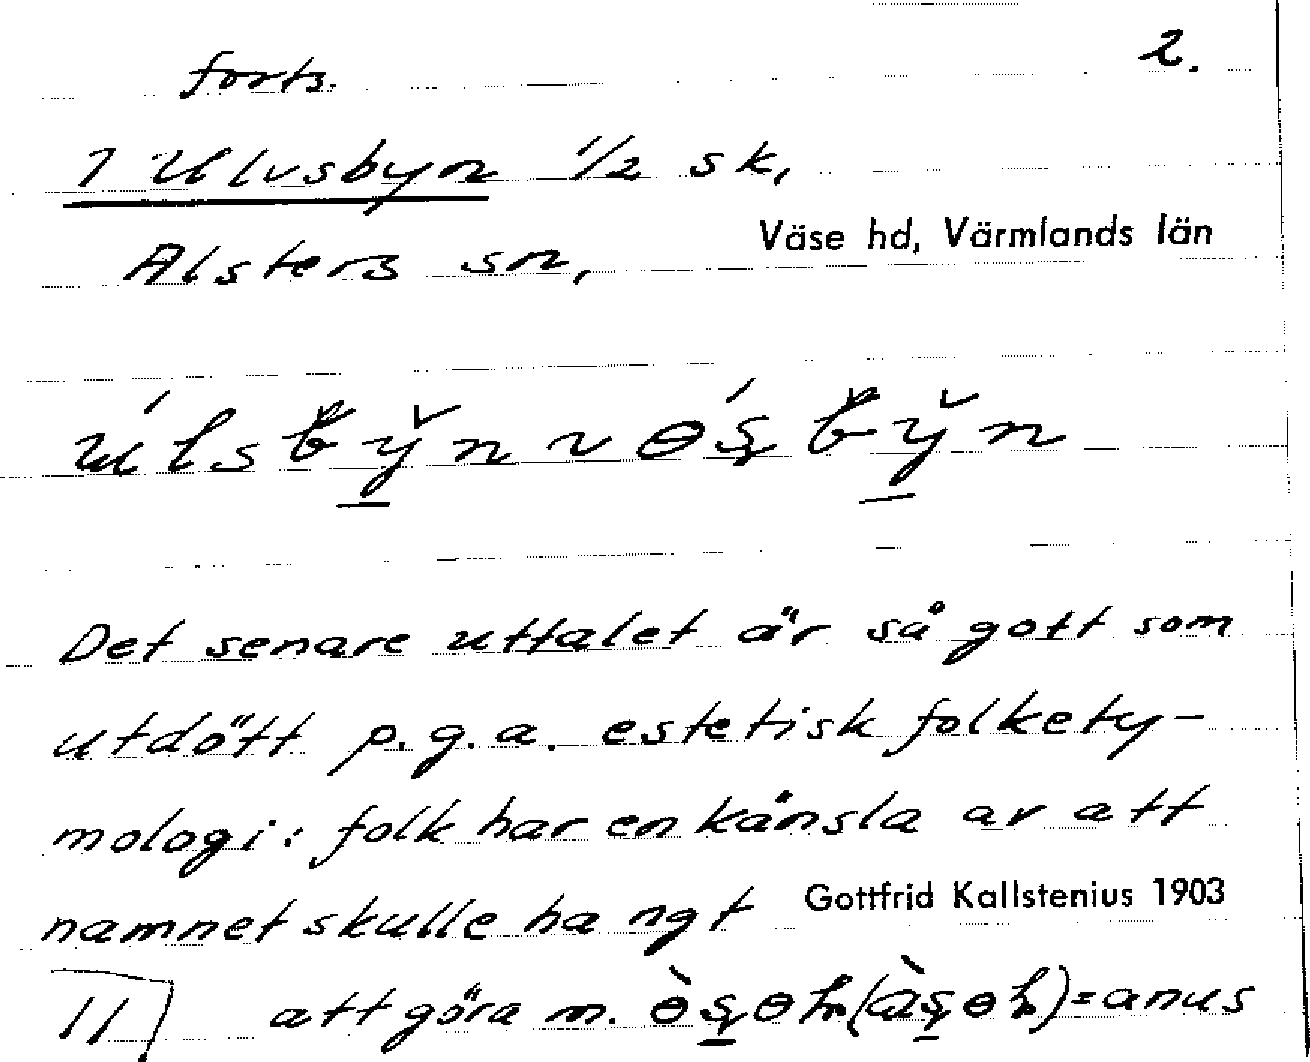 forts. 2.
1 Ulvsbyn 1/2 sk,
Alsters sn, Väse hd, Värmlands län
Det senare uttalet är så gott som
utdött p.g.a. estetisk folkety-
mologi: folk har en känsla av att
namnet skulle ha ngt Gottfrid Kallstenius 1903
11 att göra m. = anus